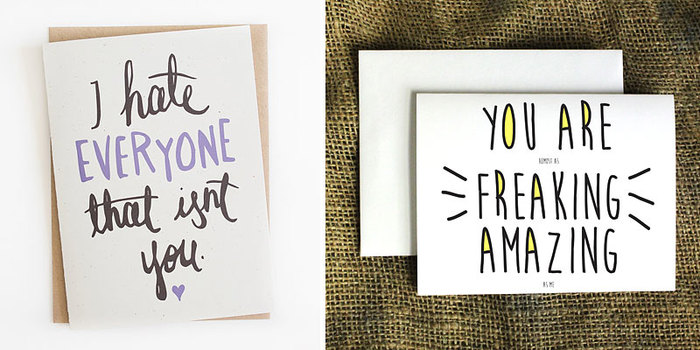 I hate
EVERYONE
that isnt
you.
YOU ARE
ALMOST AS
FREAKING
AMAZING
AS ME